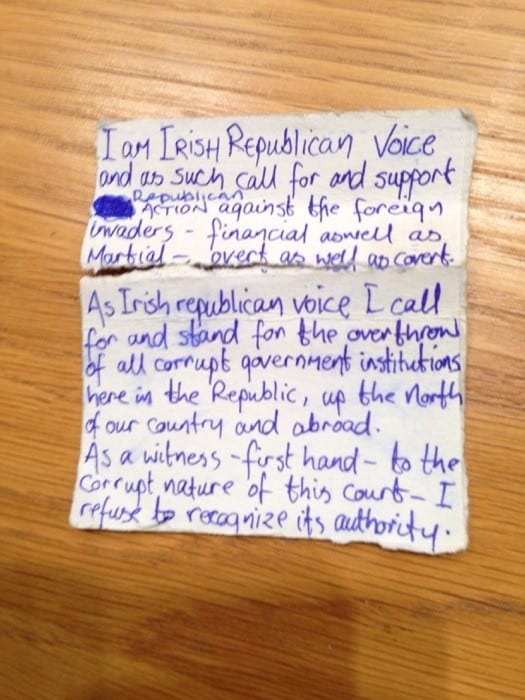 I AM IRISH REPUBLICAN VOICE
and as such call for and support
Republican
ACTION against the foreign
invaders - financial aswell as
Martial - overt as well as covert.
As Irish republican voice I call
for and stand for the overthrow
of all corrupt government institutions
here in the Republic, up the North
of our country and abroad.
As a witness - first hand - to the
corrupt nature of this court - I
refuse to recognize its authority.